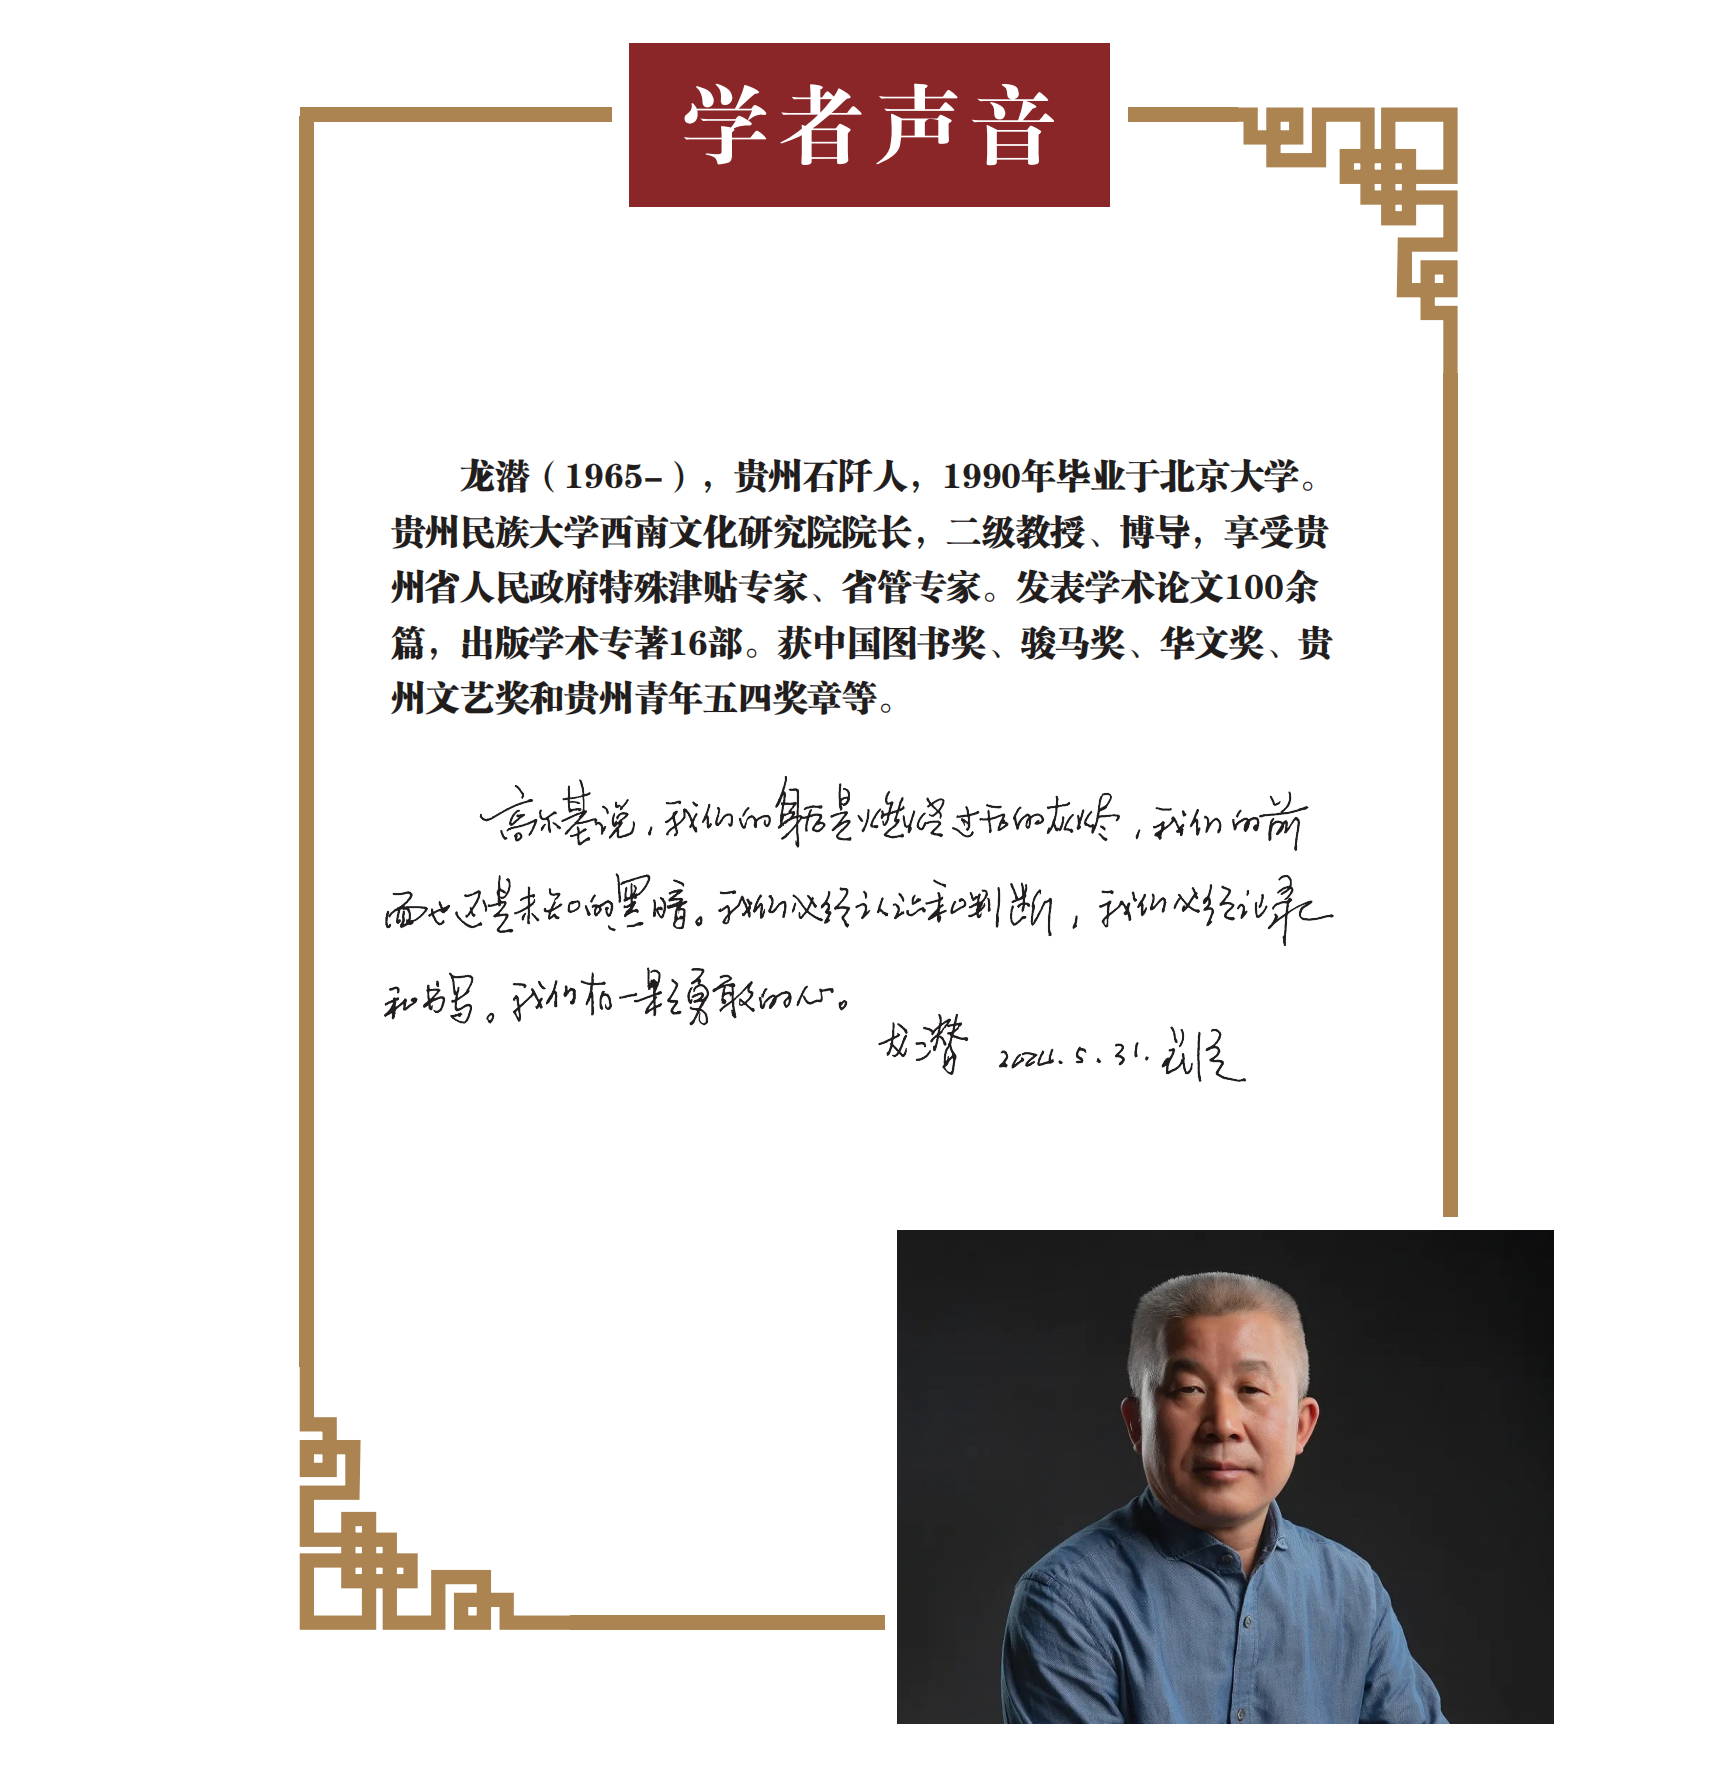 学者声音
龙潜（1965–），贵州石阡人，1990年毕业于北京大学。
贵州民族大学西南文化研究院院长，二级教授、博导，享受贵
州省人民政府特殊津贴专家、省管专家。发表学术论文100余
篇，出版学术专著16部。获中国图书奖、骏马奖、华文奖、贵
州文艺奖和贵州青年五四奖章等。
高尔基说，我们的身后是燃烧过后的灰烬，我们的前
面也还是未知的黑暗。我们必经认识和判断，我们必经记录
和书写。我们有一颗勇敢的心。
龙潜 2024.5.31.